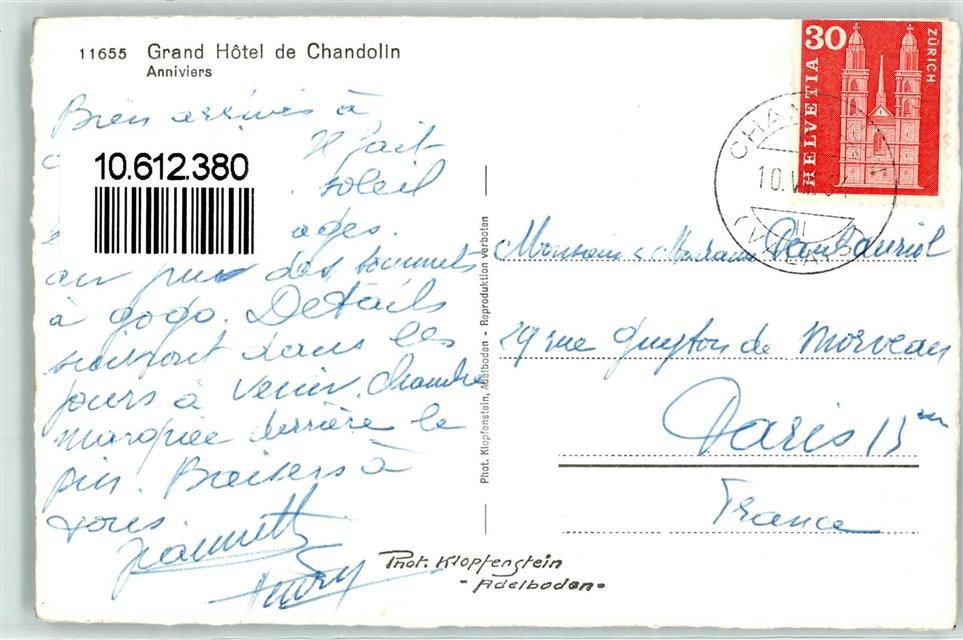 11655 Grand Hôtel de Chandolin
Anniviers
Bien arrivés à
Il fait
soleil
ages.
10.612.380
un peu des sommets
à gogo. Details
suivront dans les
jours à venir. Chambre
marquée derrière le
pin. Baisers à
vous.
Jeannette
Phot. Klopfenstein, Adelboden - Reproduktion verboten
30
HELVETIA
ZÜRICH
CHANDOLIN
10.V
(VALAIS)
Monsieur & Madame Paul Auriol
29 rue Guyton de Morveau
Paris 13 em
France
Phot. Klopfenstein
- Adelboden -